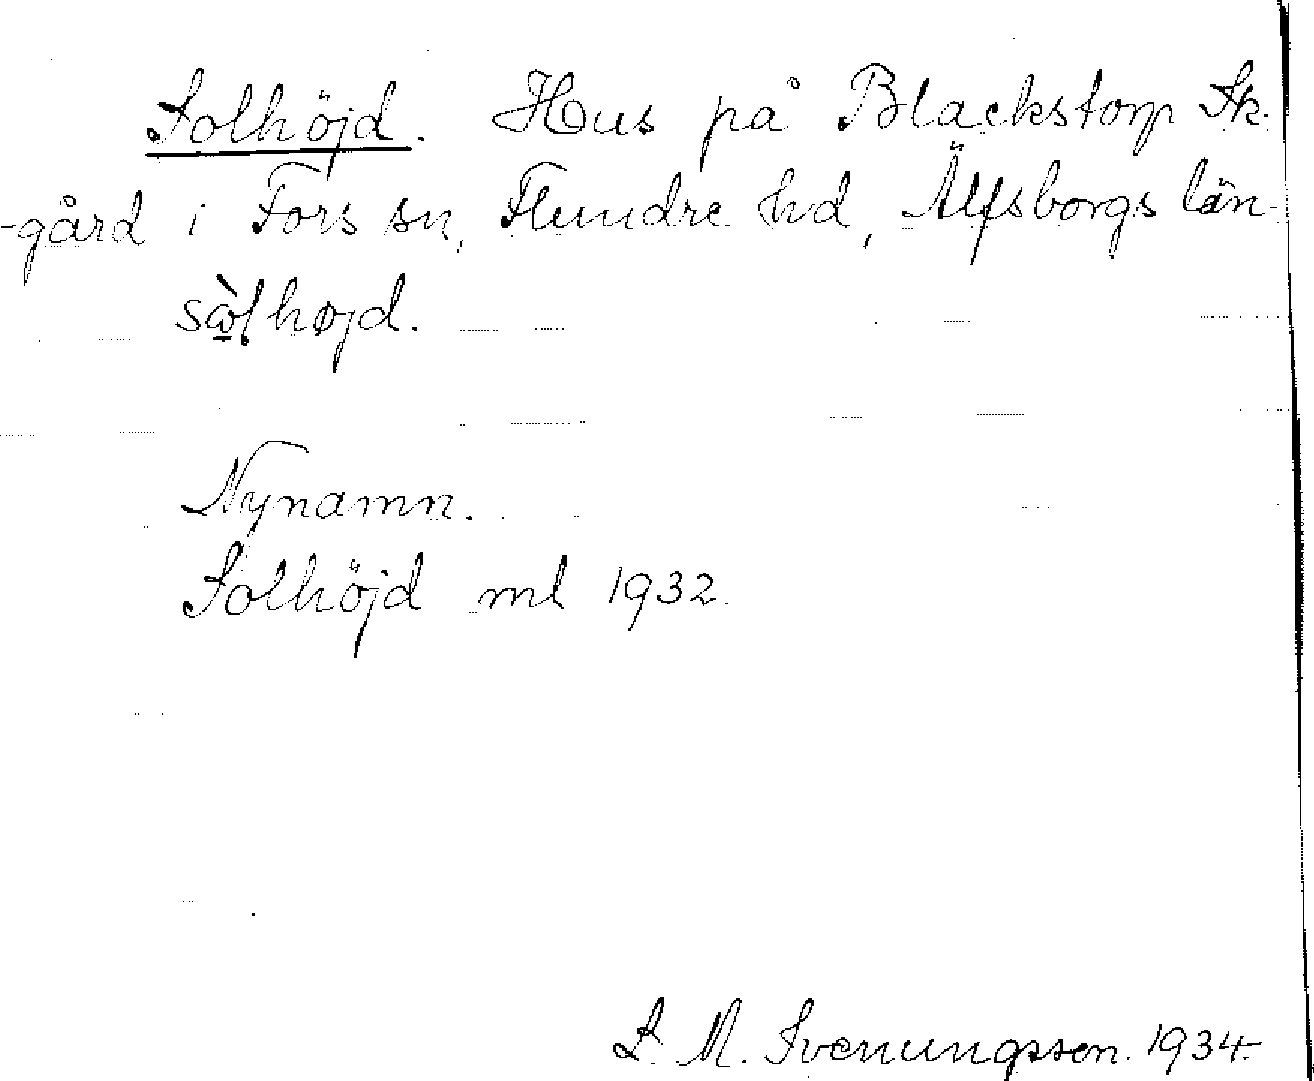 Solhöjd. Hus på Blackstorp Sk.
-gård i Fors sn, Flundre hd, Älfsborgs län.
Nynamn.
Solhöjd ml 1932.
S. M. Svenungsson. 1934.